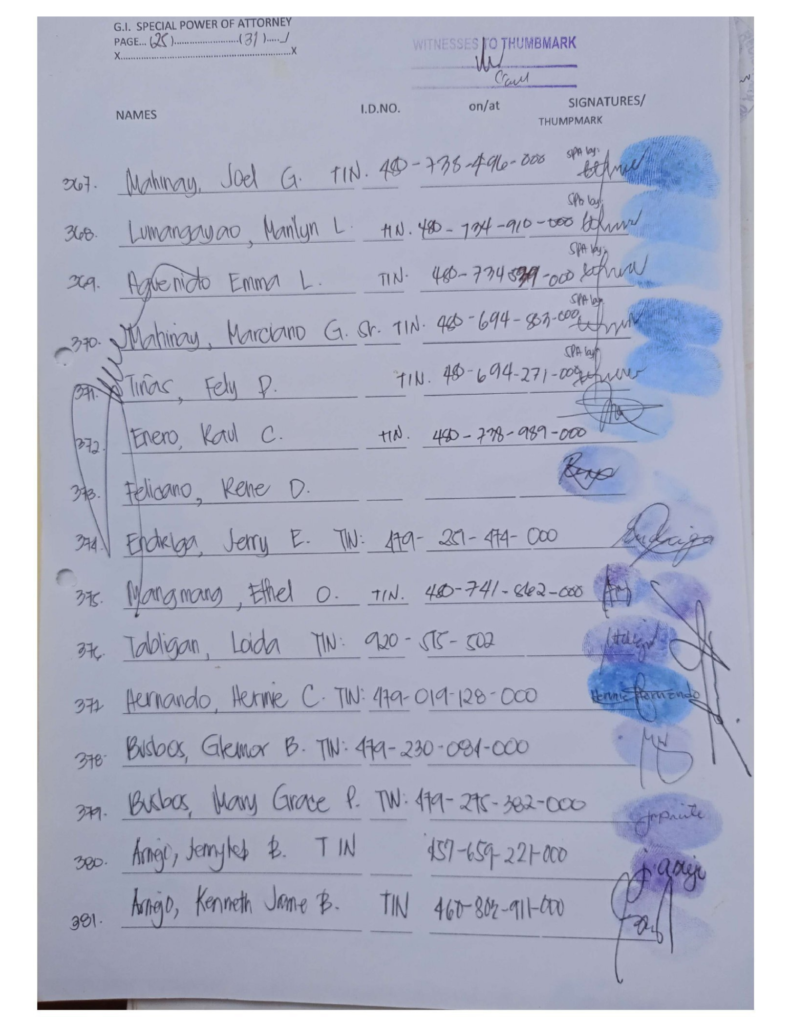 G.I. SPECIAL POWER OF ATTORNEY
PAGE... (25).....................(31).....
X..........................................................X
WITNESSES TO THUMBMARK
NAMES I.D.NO. on/at SIGNATURES/
THUMPMARK
367. Mahinay, Joel G. TIN. 480-738-496-000 SPA by:
368. Lumangayao, Marilyn L. TIN. 480-734-910-000 SPA by:
369. Aguenido Emma L. TIN. 480-734 -000 SPA by:
370. Mahinay, Marciano G. Sr. TIN. 480-694-803-000 SPA by:
371. Tiñas, Fely P. TIN. 480-694-271-000 SPA by:
372. Enero, Raul C. TIN. 480-738-989-000
373. Feliciano, Rene D.
374. Endriga, Jerry E. TIN: 479-251-474-000 Endriga
375. Mangmang, Ethel O. TIN. 480-741-862-000
376. Tabligan, Loida TIN: 920-515-502
377 Hernando, Hermie C. TIN: 479-019-128-000 Hermie Hernando
378. Busbos, Glemor B. TIN: 479-230-081-000
379. Busbos, Mary Grace P. TIN: 479-275-382-000
380. Arnejo, B. TIN 457-659-221-000
381. Arnejo, Kenneth Jame B. TIN 460-802-911-000